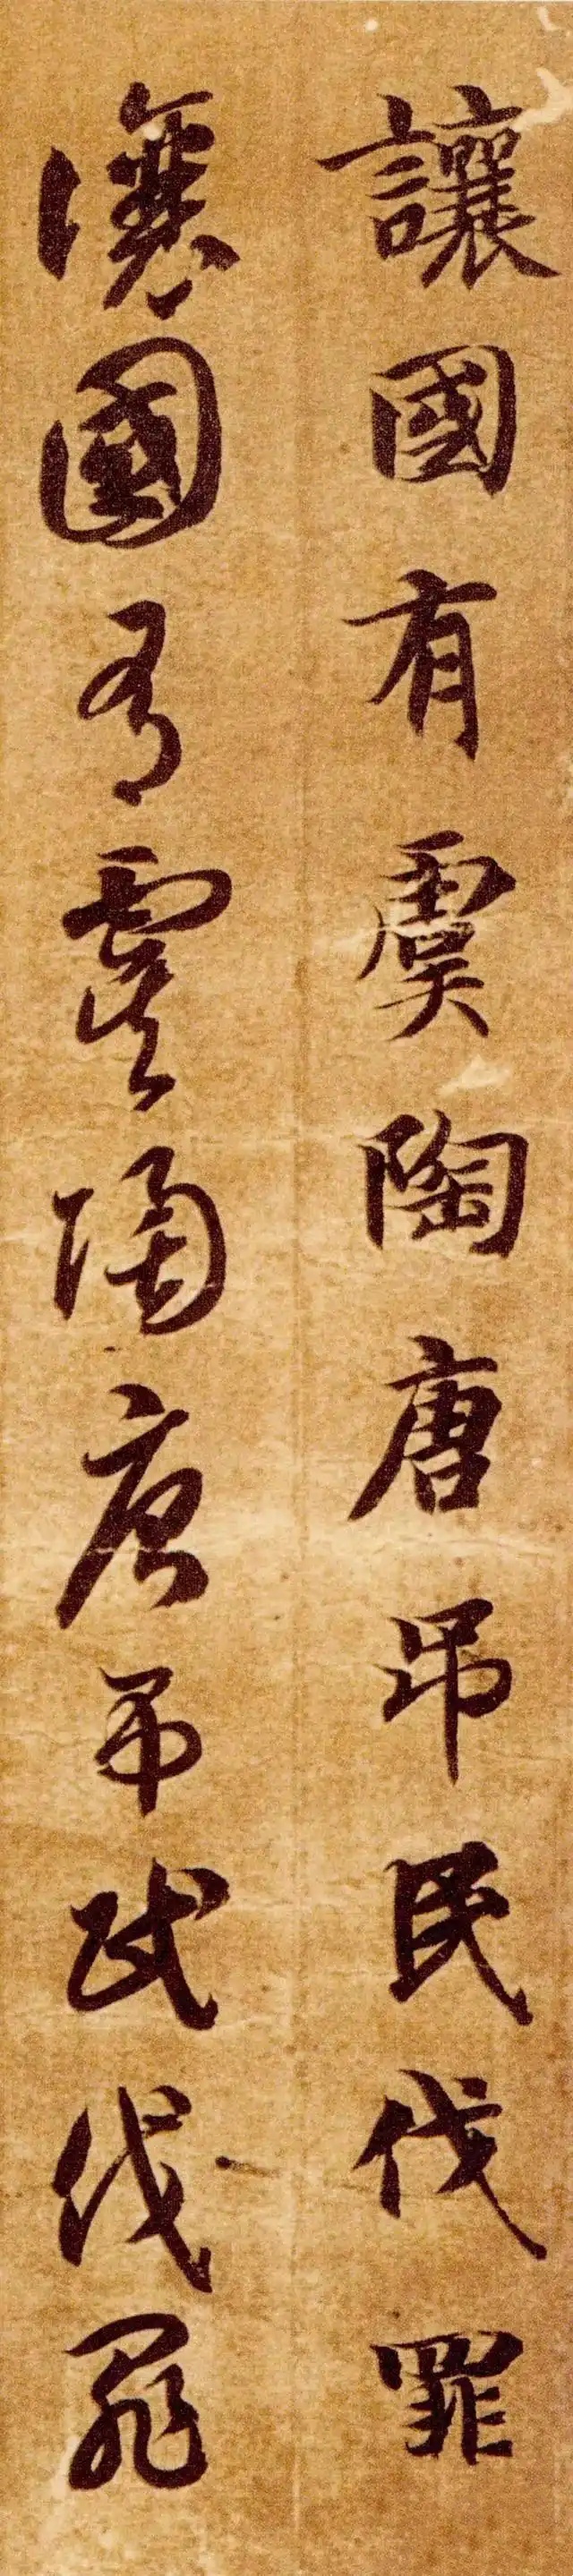 讓國有虞陶唐吊民伐罪
讓國有虞陶唐弔民伐罪